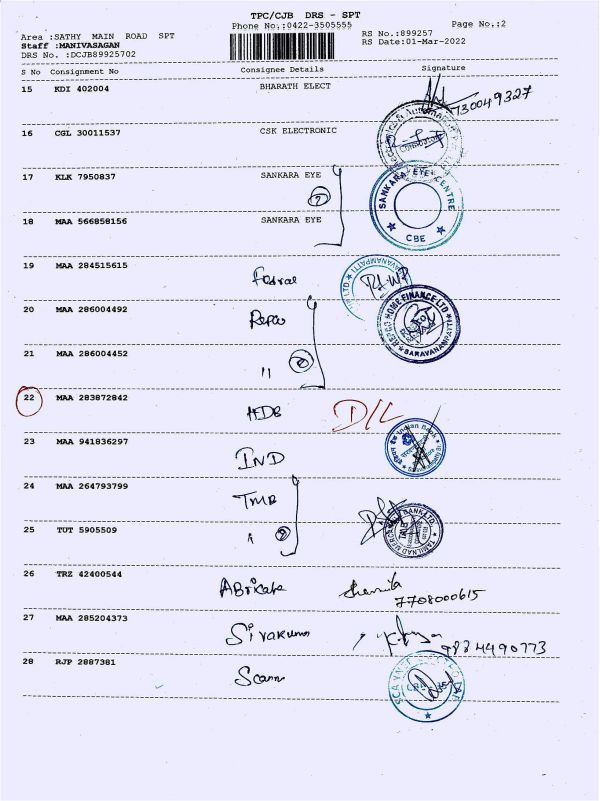 TPC/CJB DRS - SPT
Phone No.:0422-3505555
Page No.:2
Area :SATHY MAIN ROAD SPT
Staff :MANIVASAGAN
DRS No. :DCJB89925702
RS No.:899257
RS Date:01-Mar-2022
S No Consignment No Consignee Details Signature
15 KDI 402004 BHARATH ELECT
16 CGL 30011537 CSK ELECTRONIC
17 KLK 7950837 SANKARA EYE
SANKARA EYE CENTRE
CBE
18 MAA 566858156 SANKARA EYE
19 MAA 284515615
20 MAA 286004492 Repco
REPCO HOME FINANCE LTD
SARAVANAMPATTI
21 MAA 286004452 "
22 MAA 283872842 HDB D/L
23 MAA 941836297 IND
Indian Bank
24 MAA 264793799 TMB
25 TUT 5905509 "
TAMILNAD MERCANTILE BANK LTD.
26 TRZ 42400544
7708000615
27 MAA 285204373 Sivakumar
9824490773
28 RJP 2887381 Scann